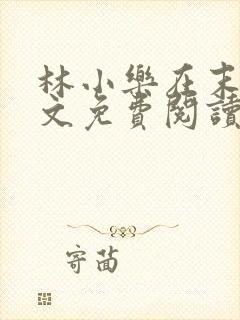 林小樂在末
文免費閱讀
寄菡